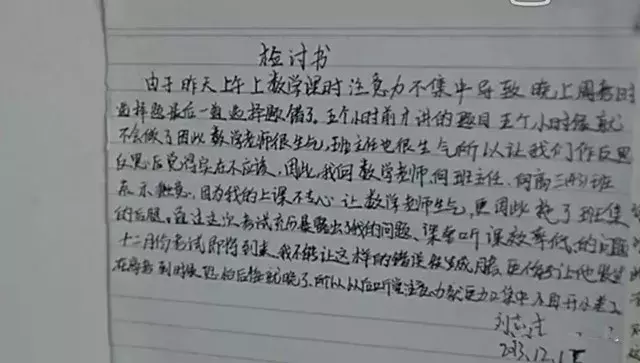 检讨书
由于昨天上午上数学课时注意力不集中导致晚上周考时
选择题最后一题选择题错了。五个小时前才讲的题目五个小时后就
不会做了因此数学老师很生气,班主任也很生气所以让我们作反思
反思后觉得实在不应该,因此,我向数学老师,向班主任、向高三(43)班
表示抱歉,因为我的上课不专心让数学老师生气,更因此拖了班集体
的后腿。在这次考试充分暴露出了我的问题、课堂听课效率低的问题
十二月份考试即将到来,我不能让这样的错误再发生
在高考到时候恐怕后悔就晚了、所以以后听课注意力
2013.12.1